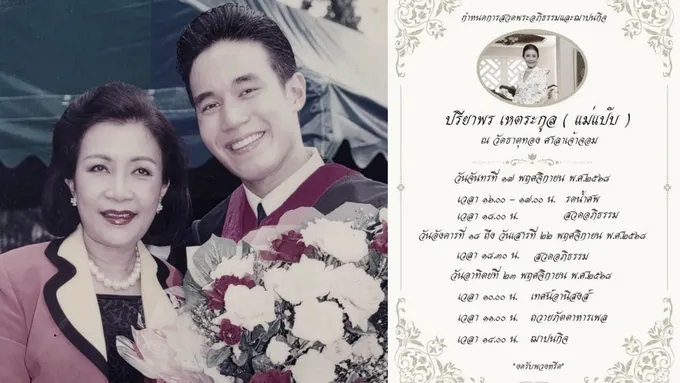 กำหนดการสวดพระอภิธรรมและฌาปนกิจ
ปรียาพร เหตระกูล ( แม่แป๊บ )
ณ วัดธาตุทอง ศาลาเจ้าจอม
วันจันทร์ที่ ๑๗ พฤศจิกายน พ.ศ.๒๕๖๘
เวลา ๑๖.๐๐ - ๑๗.๐๐ น. รดน้ำศพ
เวลา ๑๘.๐๐ น. สวดอภิธรรม
วันอังคารที่ ๑๘ ถึง วันเสาร์ที่ ๒๒ พฤศจิกายน พ.ศ.๒๕๖๘
เวลา ๑๘.๓๐ น. สวดอภิธรรม
วันอาทิตย์ที่ ๒๓ พฤศจิกายน พ.ศ.๒๕๖๘
เวลา ๑๐.๐๐ น. เทศน์อานิสงส์
เวลา ๑๑.๐๐ น. ถวายภัตตาหารเพล
เวลา ๑๔.๐๐ น. ฌาปนกิจ
*งดรับพวงหรีด*